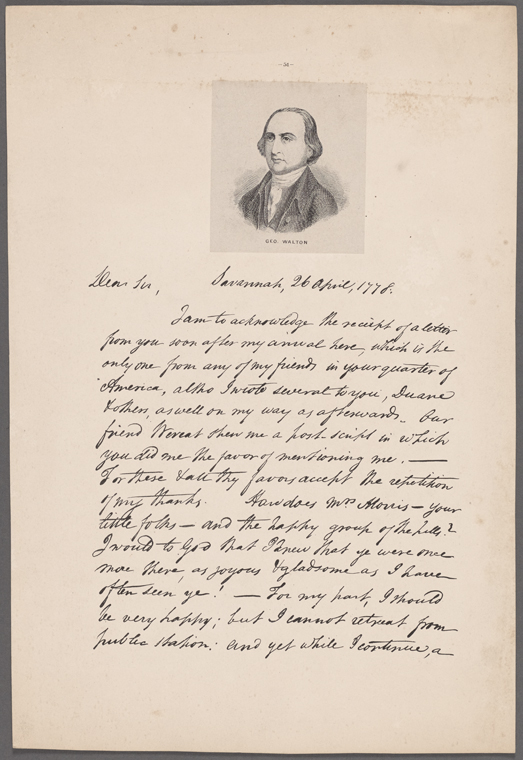 —54—
GEO. WALTON
Dear Sir, Savannah, 26 April, 1778.
I am to acknowledge the reciept of a letter
from you soon after my arrival here, which is the
only one from any of my friends in your quarter of
America, altho I wrote several to you, Duane
& others, as well on my way as afterwards. Our
friend Wereat shew me a post script in which
you did me the favor of mentioning me. —
For these & all thy favors accept the repetition
of my thanks. How does Mrs Morris — your
little folks — and the happy group of the hills?
I would to God that I knew that ye were once
more there, as joyous & gladsome as I have
often seen ye! — For my part, I should
be very happy; but I cannot retreat from
public station: and yet while I continue, a